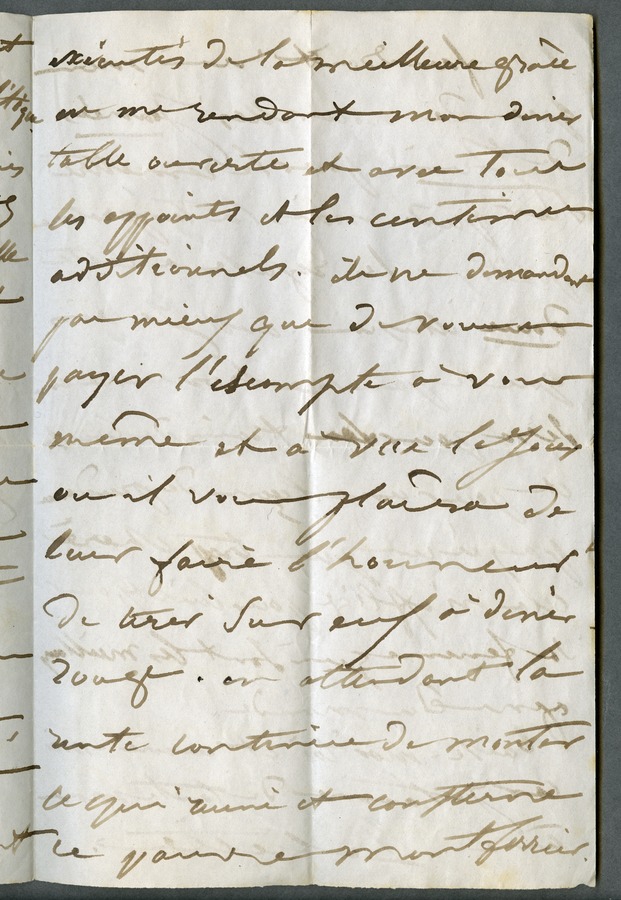 exécutés de la meilleure grâce
en me rendant mon diner
table ouverte et avec Tous
les appoints et les centimes
additionnels. ils ne demandent
pas mieux que de vous
payer l'escompte à vous
même et à vue le Jour
ou il vous plaîra de
leur faire l'honneur
de tirer Sur eux à diner
rouge. en attendant la
rente continue de monter
ce qui ruine et consterne
ce pauvre Montferrier.